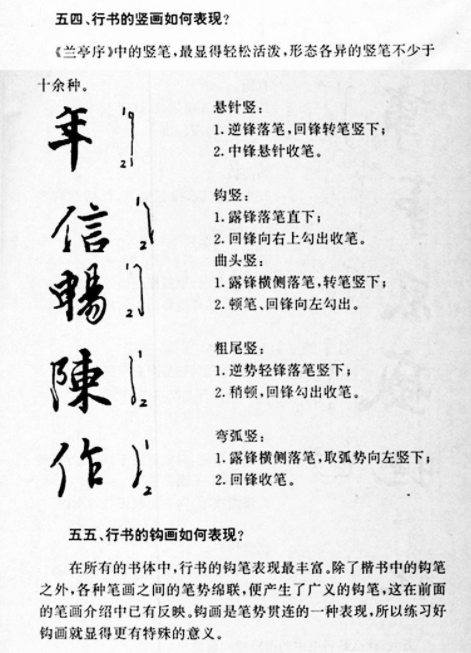 五四、行书的竖画如何表现?
《兰亭序》中的竖笔,最显得轻松活泼,形态各异的竖笔不少于
十余种。
年 1 2
悬针竖:
1.逆锋落笔,回锋转笔竖下;
2.中锋悬针收笔。
信 1 2
钩竖:
1.露锋落笔直下;
2.回锋向右上勾出收笔。
暢 1 2
曲头竖:
1.露锋横侧落笔,转笔竖下;
2.顿笔、回锋向左勾出。
陳 1 2
粗尾竖:
1.逆势轻锋落笔竖下;
2.稍顿,回锋勾出收笔。
作 1 2
弯弧竖:
1.露锋横侧落笔,取弧势向左竖下;
2.回锋收笔。
五五、行书的钩画如何表现?
在所有的书体中,行书的钩笔表现最丰富。除了楷书中的钩笔
之外,各种笔画之间的笔势绵联,便产生了广义的钩笔,这在前面
的笔画介绍中已有反映。钩画是笔势贯连的一种表现,所以练习好
钩画就显得更有特殊的意义。